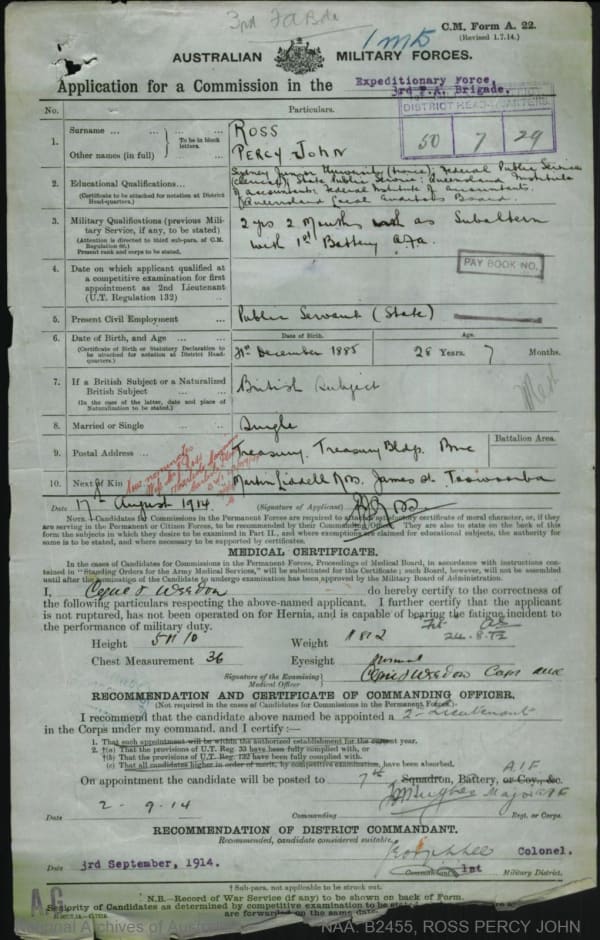 3rd FABde
C.M. Form A. 22.
(Revised 1.7.14.)
1 m5
AUSTRALIAN MILITARY FORCES.
Application for a Commission in the Expeditionary Force,
3rd F.A. Brigade.
DISTRICT HEAD-QUARTERS
50 7 29
No. Particulars.
1. Surname ... ... ... To be in block letters. ROSS
Other names (in full) PERCY JOHN
2. Educational Qualifications... Sydney Junior University, Federal Public Service
(Certificate to be attached for notation at District Head-quarters.) (Clerical) State Public Service; Queensland Institute
of Accountants; Federal Institute of Accountants.
Queensland Local Auditors Board.
3. Military Qualifications (previous Military Service, if any, to be stated) 2 yrs 2 months as Subaltern
(Attention is directed to third sub-para. of C.M. Regulation 66.) with 1st Battery AFA.
Present rank and corps to be stated.
PAY BOOK NO.
4. Date on which applicant qualified at a competitive examination for first appointment as 2nd Lieutenant (U.T. Regulation 132)
5. Present Civil Employment ... Public Servant (State)
6. Date of Birth, and Age ... ... Date of Birth. Age.
(Certificate of Birth or Statutory Declaration to be attached for notation at District Head-quarters.) 31st December 1885 28 Years. 7 Months.
7. If a British Subject or a Naturalized British Subject ... ... British Subject
(In the case of the latter, date and place of Naturalization to be stated.)
8. Married or Single ... ... Single
9. Postal Address ... ... Treasury, Treasury Bldgs. Bne Battalion Area.
10. Next of Kin Martin Liddell Ross, James St. Toowoomba
Date 17th August 1914 (Signature of Applicant)
NOTE.—Candidates for Commissions in the Permanent Forces are required to attach satisfactory certificate of moral character, or, if they are serving in the Permanent or Citizen Forces, to be recommended by their Commanding Officer. They are also to state on the back of this form the subjects in which they desire to be examined in Part II., and where exemptions are claimed for educational subjects, the authority for same is to be stated, and where necessary to be supported by certificates.
MEDICAL CERTIFICATE.
In the cases of Candidates for Commissions in the Permanent Forces, Proceedings of Medical Board, in accordance with instructions contained in "Standing Orders for the Army Medical Services," will be substituted for this Certificate; such Board, however, will not be assembled until after the nomination of the Candidate to undergo examination has been approved by the Military Board of Administration.
I, do hereby certify to the correctness of
the following particulars respecting the above-named applicant. I further certify that the applicant
is not ruptured, has not been operated on for Hernia, and is capable of bearing the fatigue incident to
the performance of military duty.
Height 5ft 10 Weight
Chest Measurement 36 Eyesight normal
Signature of the Examining Medical Officer Capt AMC
RECOMMENDATION AND CERTIFICATE OF COMMANDING OFFICER.
(Not required in the cases of Candidates for Commissions in the Permanent Forces.)
I recommend that the candidate above named be appointed a 2-Lieutenant
in the Corps under my command, and I certify :—
1. That such appointment will be within the authorized establishment for the current year.
2. †(a) That the provisions of U.T. Reg. 33 have been fully complied with, or
†(b) That the provisions of U.T. Reg. 132 have been fully complied with.
(c) That all candidates higher in order of merit, by competitive examination, have been absorbed.
On appointment the candidate will be posted to 7th Squadron, Battery, or Coy., &c. A.I.F
Major AIF
Date 2-9-14 Commanding Regt. or Corps.
RECOMMENDATION OF DISTRICT COMMANDANT.
Recommended, candidate considered suitable.
Colonel.
Date 3rd September, 1914. Commandant 1st Military District.
† Sub-para. not applicable to be struck out.
N.B.—Record of War Service (if any) to be shown on back of Form.
Seniority of Candidates as determined by competitive examination
are forwarded on the same date.
A.G
National Archives of Australia NAA: B2455, ROSS PERCY JOHN